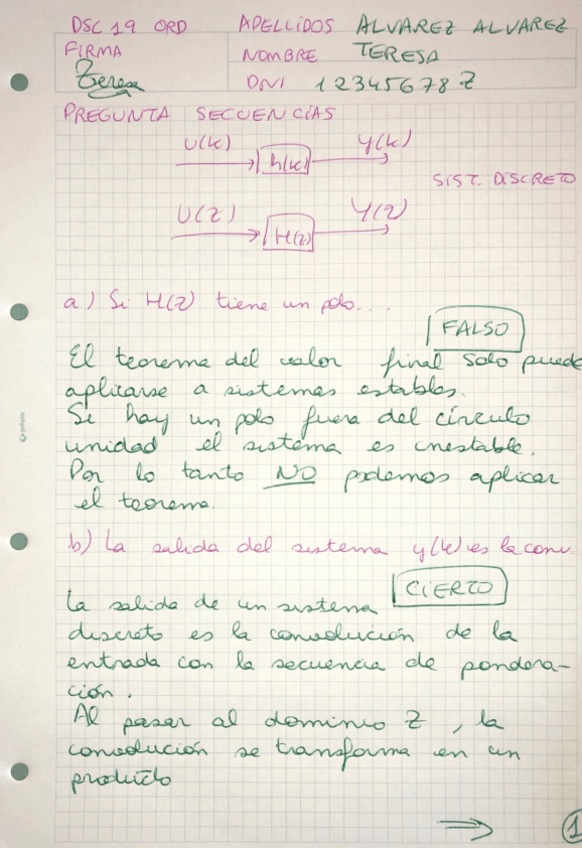 DSC 19 ORD APELLIDOS ALVAREZ ALVAREZ
FIRMA NOMBRE TERESA
Teresa DNI 12345678 Z
PREGUNTA SECUENCIAS
U(k) h(k) y(k)
SIST. DISCRETO
U(z) H(z) Y(z)
a) Si H(z) tiene un polo...
FALSO
El teorema del valor final solo puede
aplicarse a sistemas estables.
Si hay un polo fuera del círculo
unidad el sistema es inestable.
Por lo tanto NO podemos aplicar
el teorema.
b) La salida del sistema y(k) es la conv.
CIERTO
La salida de un sistema
discreto es la convolución de la
entrada con la secuencia de pondera-
ción.
Al pasar al dominio Z, la
convolución se transforma en un
producto
⇒ 1